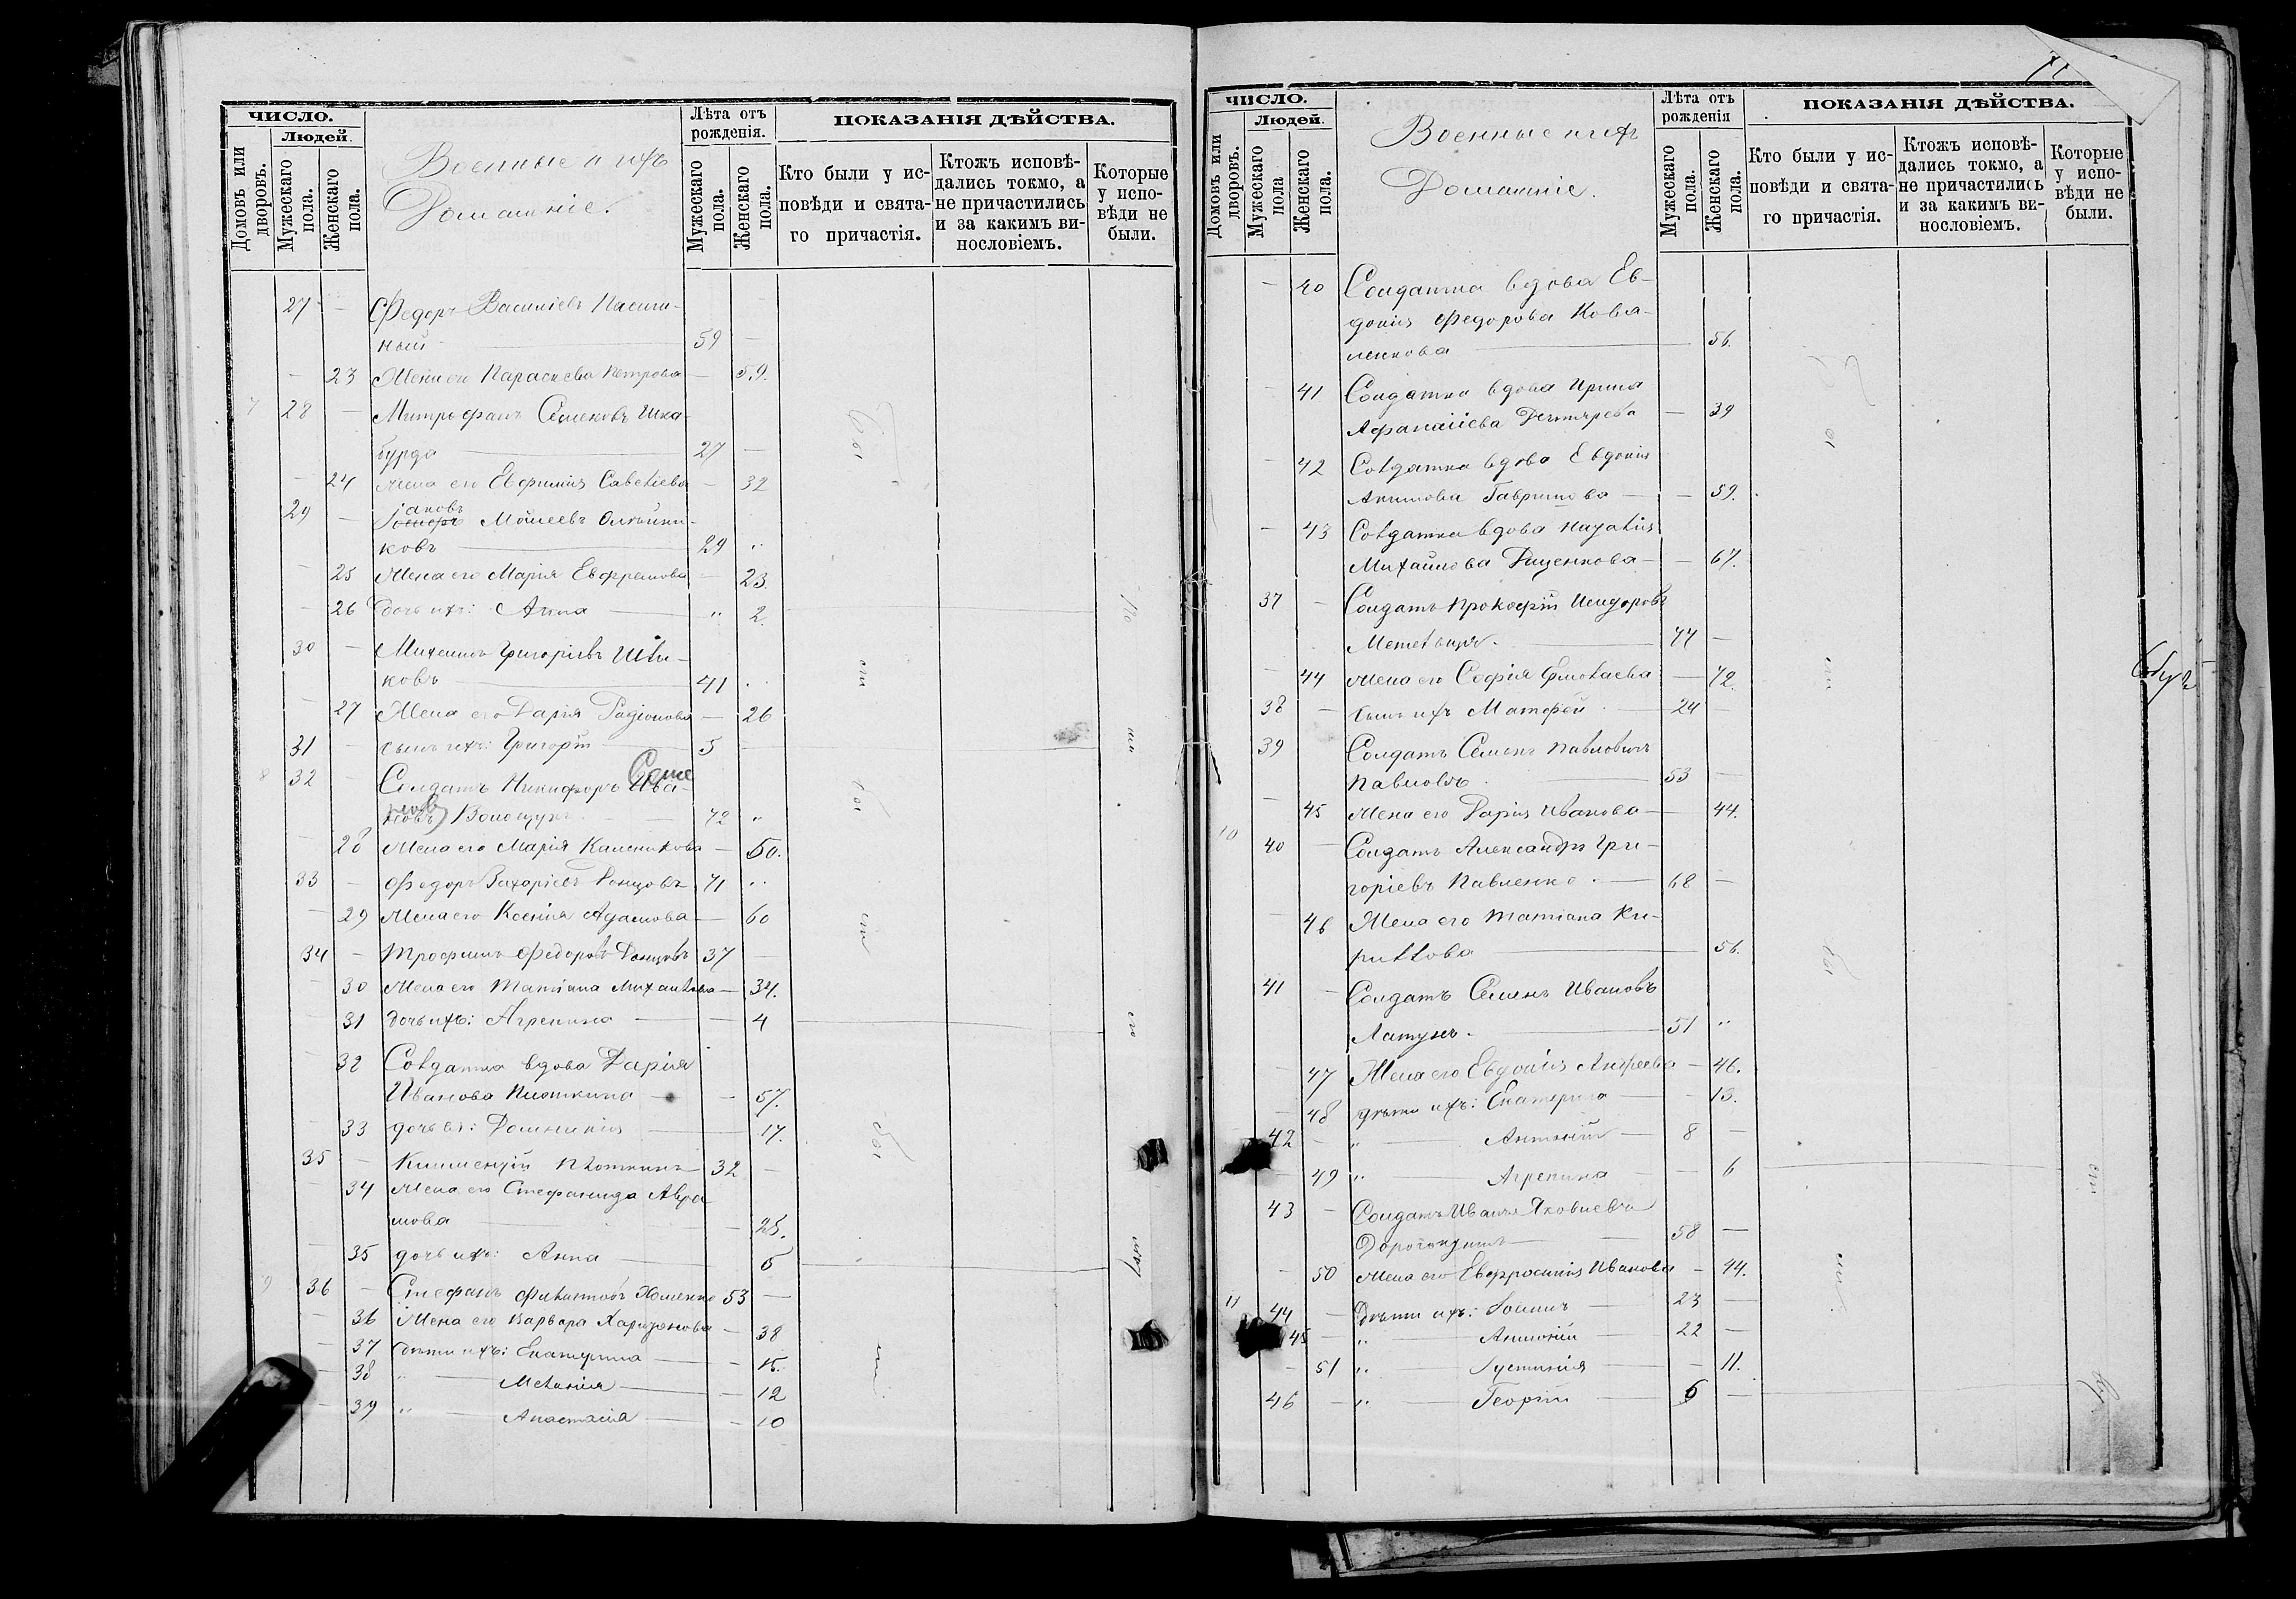 ЧИСЛО.
Людей.
Домовъ или дворовъ.
Мужескаго пола.
Женскаго пола.
Военные и ихъ
Домашніе.
Лѣта отъ рожденія.
Мужескаго пола.
Женскаго пола.
ПОКАЗАНІЯ ДѢЙСТВА.
Кто были у исповѣди и святаго причастія.
Ктожъ исповѣдались токмо, а не причастились и за какимъ винословіемъ.
Которые у исповѣди не были.
27 — Федоръ Василіевъ
ный 59 —
— 23 Жена его Параскева Петрова — 59.
7 28 — Митрофанъ Семеновъ Шка-
бурда 27 —
— 24 Жена его Евфимія Савеліева — 32
29 — Іаковъ Моѵсеевъ Олѣйни-
ковъ 29 "
— 25 Жена его Марія Евфремова — 23.
— 26 дочь ихъ: Анна " 2.
30 — Михаилъ Григоріевъ
ковъ 41 "
— 27 Жена его Дарія Радіонова — 26
31 — сынъ ихъ: Григорій 5 —
8 32 — Солдатъ Никифоръ Семе
новъ Волощукъ 72 "
— 28 Жена его Марія Каленикова — 50.
33 — Федоръ Захаріевъ Донцовъ 71 "
— 29 Жена его Ксенія Адамова — 60
34 — Трофимъ Федоровъ Донцовъ 37 —
— 30 Жена его Татіана Михаилова — 34.
— 31 дочь ихъ: Агрепина — 4
— 32 Солдатка вдова Дарія
Иванова Плоткина — 57.
— 33 дочь ея: Домникія 17.
35 — Климентій Плоткинъ 32 —
— 34 Жена его Стефанида Авра
мова — 25.
— 35 дочь ихъ: Анна 6
9 36 — Стефанъ Филиповъ Хоменко 53 —
— 36 Жена его Варвара Харитонова — 38
37 дѣти ихъ: Екатерина — 15.
— 38 " Меланія — 12
— 39 " Анастасія — 10
ЧИСЛО.
Людей.
Домовъ или дворовъ.
Мужескаго пола
Женскаго пола.
Военные и ихъ
Домашніе.
Лѣта отъ рожденія
Мужескаго пола.
Женскаго пола.
ПОКАЗАНІЯ ДѢЙСТВА.
Кто были у исповѣди и святаго причастія.
Ктожъ исповѣдались токмо, а не причастились и за какимъ винословіемъ.
Которые у исповѣди не были.
— 40 Солдатка вдова Ев-
докія Федорова Кова-
ленкова 56.
— 41 Солдатка вдова Ирина
Афанасіева Дехтярева — 39
— 42 Солдатка вдова Евдокія
Акимова Гаврилова — 59.
— 43 Солдатка вдова Наталія
Михайлова Диценкова — 67.
37 — Солдатъ Прокофій Исидоровъ
77 —
— 44 Жена его Софія — 72.
38 — сынъ ихъ Матфей 24 —
39 Солдатъ Семенъ Павловичъ
Павловъ 53 —
— 45 Жена его Дарія Иванова — 44.
10 40 — Солдатъ Александръ Гри-
горіевъ Павленко 68 —
— 46 Жена его Татіана Ки-
риллова 56.
41 — Солдатъ Семенъ Ивановъ
51 "
— 47 Жена его Евдокія Андреева — 46.
— 48 дѣти ихъ: Екатерина — 13.
42 — " Антоній 8 —
— 49 " Агрепина — 6
43 — Солдатъ Иванъ Яковлевъ
58 —
— 50 Жена его Евфросинія Иванова — 44.
11 44 — Дѣти ихъ: 23 —
45 — " Антоній 22 —
— 51 " Іустинія — 11.
46 — " Георгій 6 —